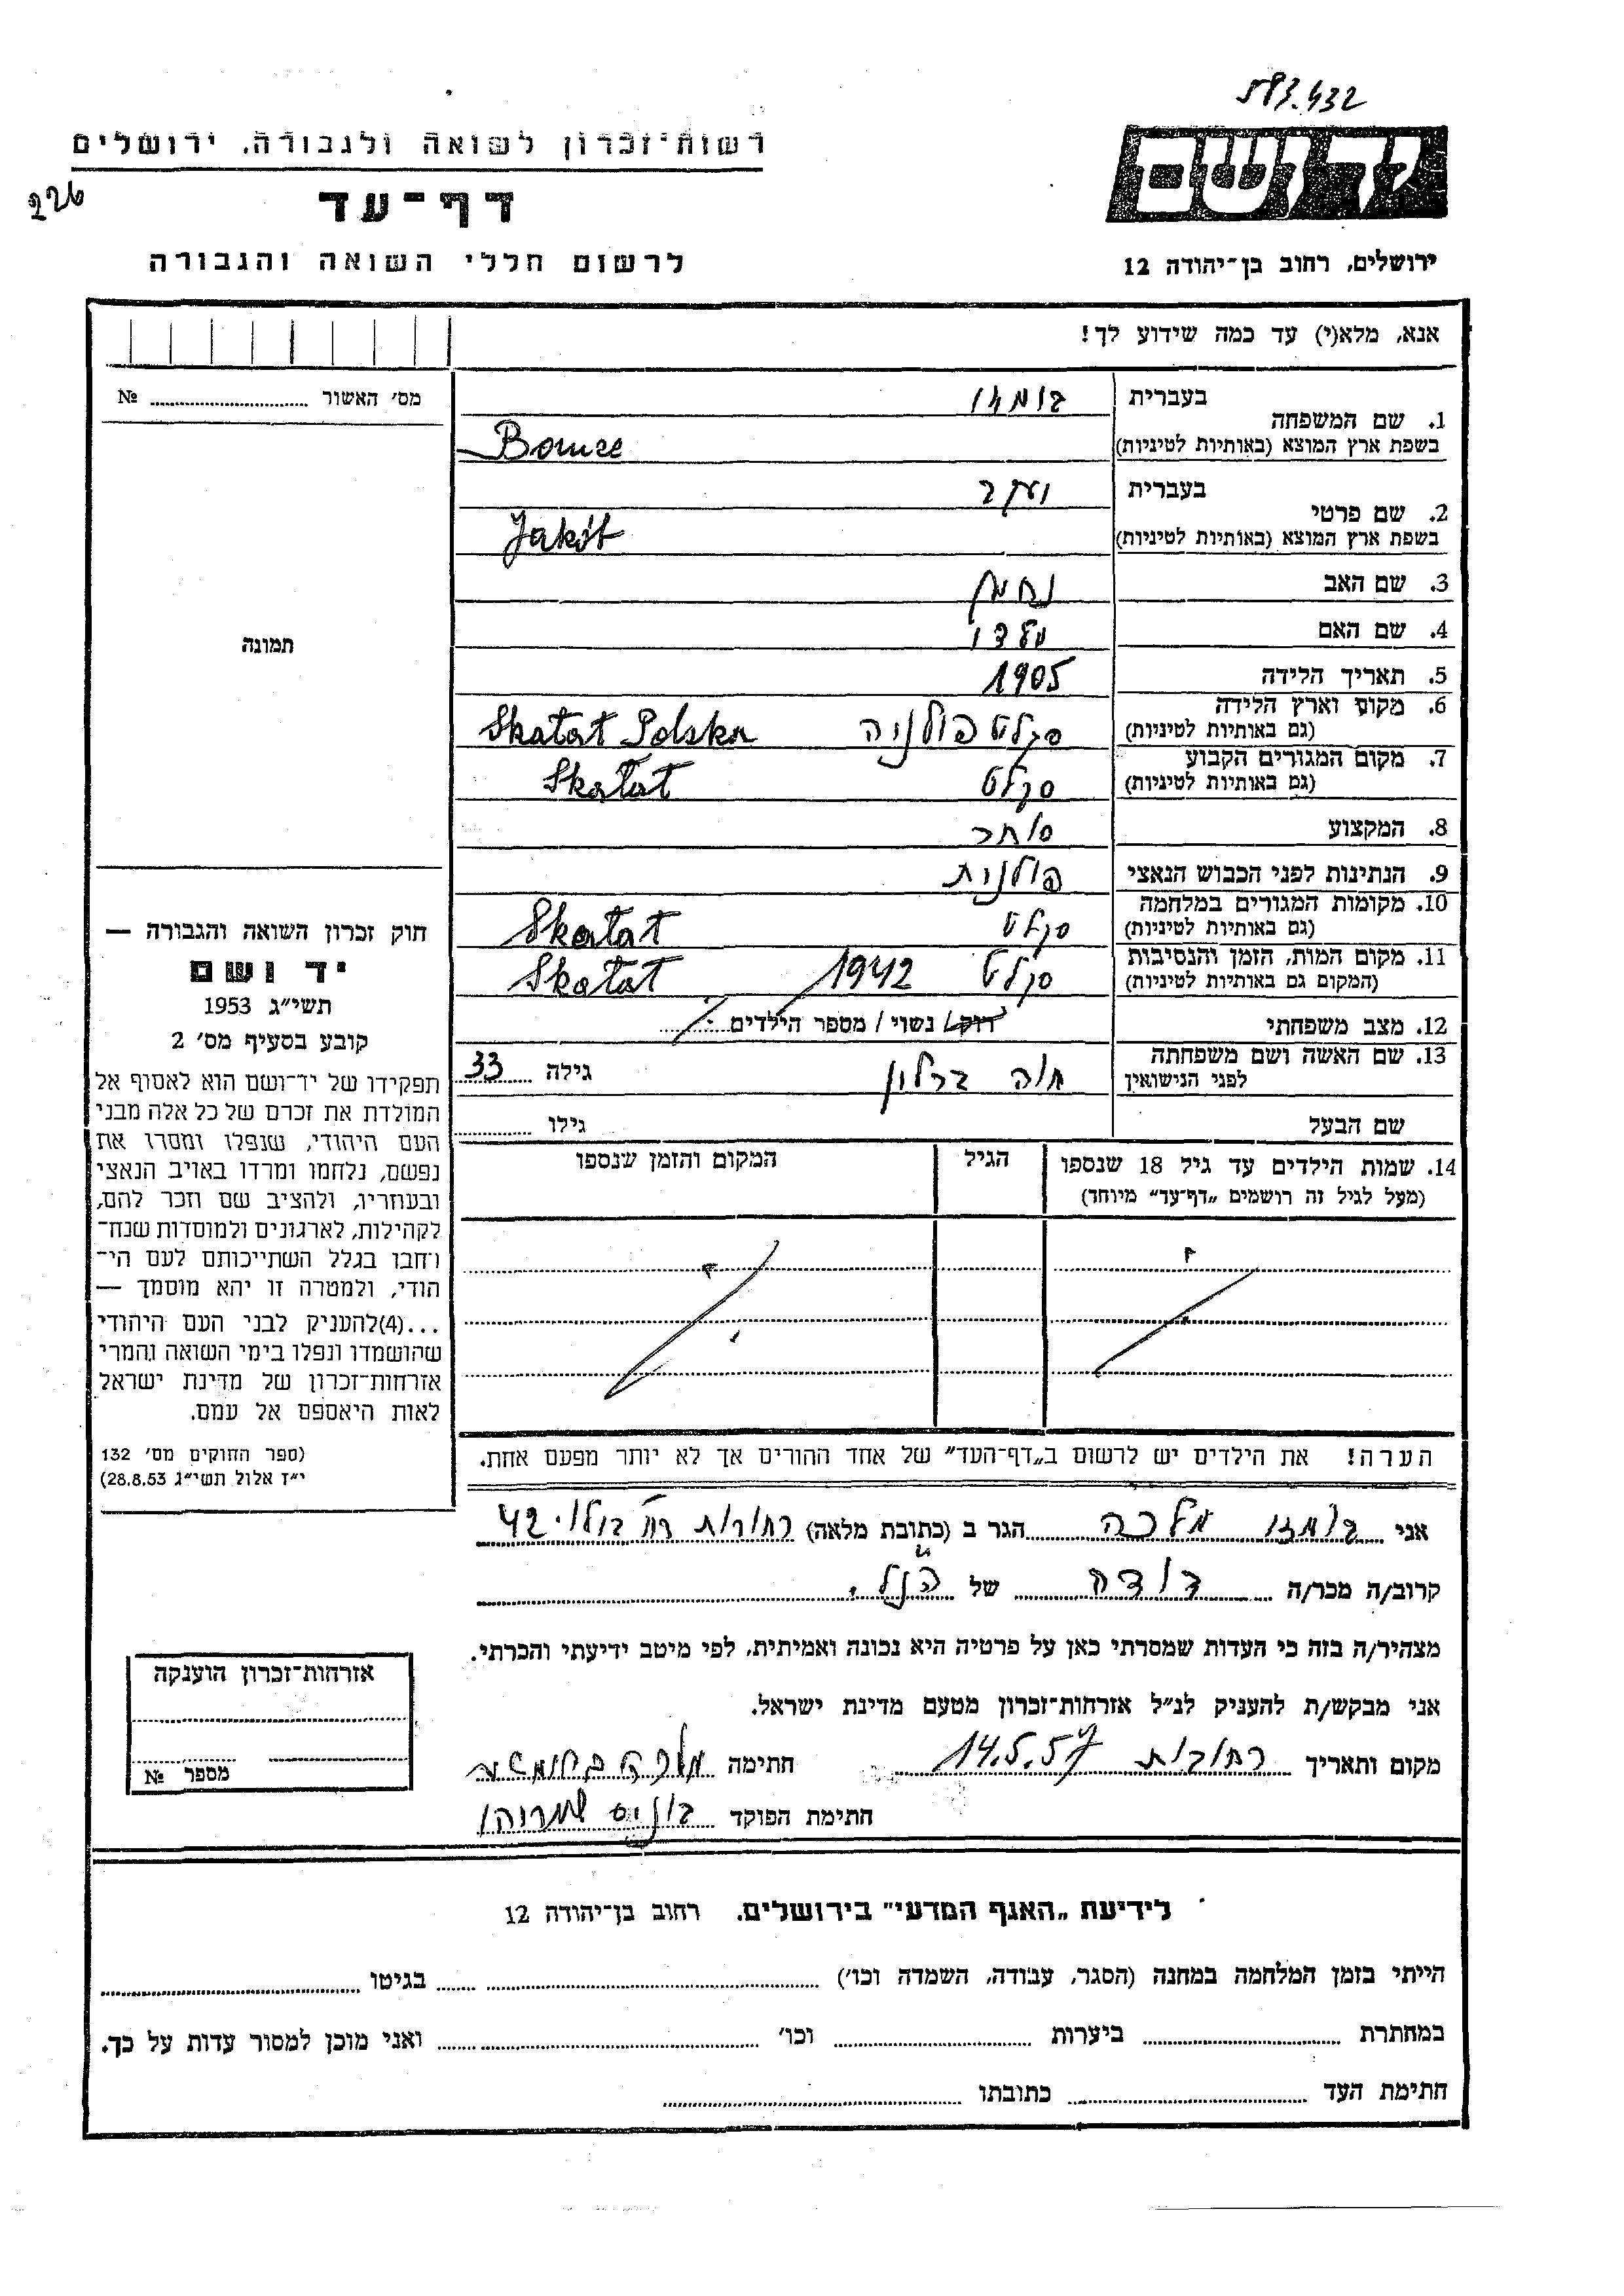 593.432
רשות־זכרון לשואה ולגבורה, ירושלים
226
דף־עד
לרשום חללי השואה והגבורה
יד ושם
ירושלים, רחוב בן־יהודה 12
אנא, מלא(י) עד כמה שידוע לך!
מס׳ האשור № 
תמונה
1. שם המשפחה
בעברית
בשפת ארץ המוצא (באותיות לטיניות) Bomze
2. שם פרטי
בעברית יעקב
בשפת ארץ המוצא (באותיות לטיניות) Jakób
3. שם האב נחמן
4. שם האם
5. תאריך הלידה 1905
6. מקום וארץ הלידה
(גם באותיות לטיניות) סקלט פולניה Skałat Polska
7. מקום המגורים הקבוע
(גם באותיות לטיניות) סקלט Skałat
8. המקצוע סוחר
9. הנתינות לפני הכבוש הנאצי פולנית
10. מקומות המגורים במלחמה
(גם באותיות לטיניות) סקלט Skałat
11. מקום המות, הזמן והנסיבות
(המקום גם באותיות לטיניות) סקלט 1942 Skałat
12. מצב משפחתי רווק / נשוי / מספר הילדים
13. שם האשה ושם משפחתה
לפני הנישואין חוה ברלון גילה 33
שם הבעל גילו
14. שמות הילדים עד גיל 18 שנספו
(מעל לגיל זה רושמים „דף־עד״ מיוחד)
הגיל
המקום והזמן שנספו
חוק זכרון השואה והגבורה —
יד ושם
תשי״ג 1953
קובע בסעיף מס׳ 2
תפקידו של יד־ושם הוא לאסוף אל
המולדת את זכרם של כל אלה מבני
העם היהודי, שנפלו ומסרו את
נפשם, נלחמו ומרדו באויב הנאצי
ובעוזריו, ולהציב שם וזכר להם,
לקהילות, לארגונים ולמוסדות שנח־
רבו בגלל השתייכותם לעם הי־
הודי, ולמטרה זו יהא מוסמך —
...(4) להעניק לבני העם היהודי
שהושמדו ונפלו בימי השואה והמרי
אזרחות־זכרון של מדינת ישראל
לאות היאספם אל עמם.
(ספר החוקים מס׳ 132
י״ז אלול תשי״ג 28.8.53)
הערה! את הילדים יש לרשום ב„דף־העד״ של אחד ההורים אך לא יותר מפעם אחת.
אני בומזו מלכה הגר ב (כתובת מלאה) רחובות 42
קרוב/ה מכר/ה דודה של הנ״ל.
מצהיר/ה בזה כי העדות שמסרתי כאן על פרטיה היא נכונה ואמיתית, לפי מיטב ידיעתי והכרתי.
אני מבקש/ת להעניק לנ״ל אזרחות־זכרון מטעם מדינת ישראל.
מקום ותאריך רחובות 14.5.57 חתימה
חתימת הפוקד
אזרחות־זכרון הוענקה
מספר №
לידיעת „האגף המדעי״ בירושלים. רחוב בן־יהודה 12
הייתי בזמן המלחמה במחנה (הסגר, עבודה, השמדה וכו׳) בגיטו
במחתרת ביערות וכו׳ ואני מוכן למסור עדות על כך.
חתימת העד כתובתו